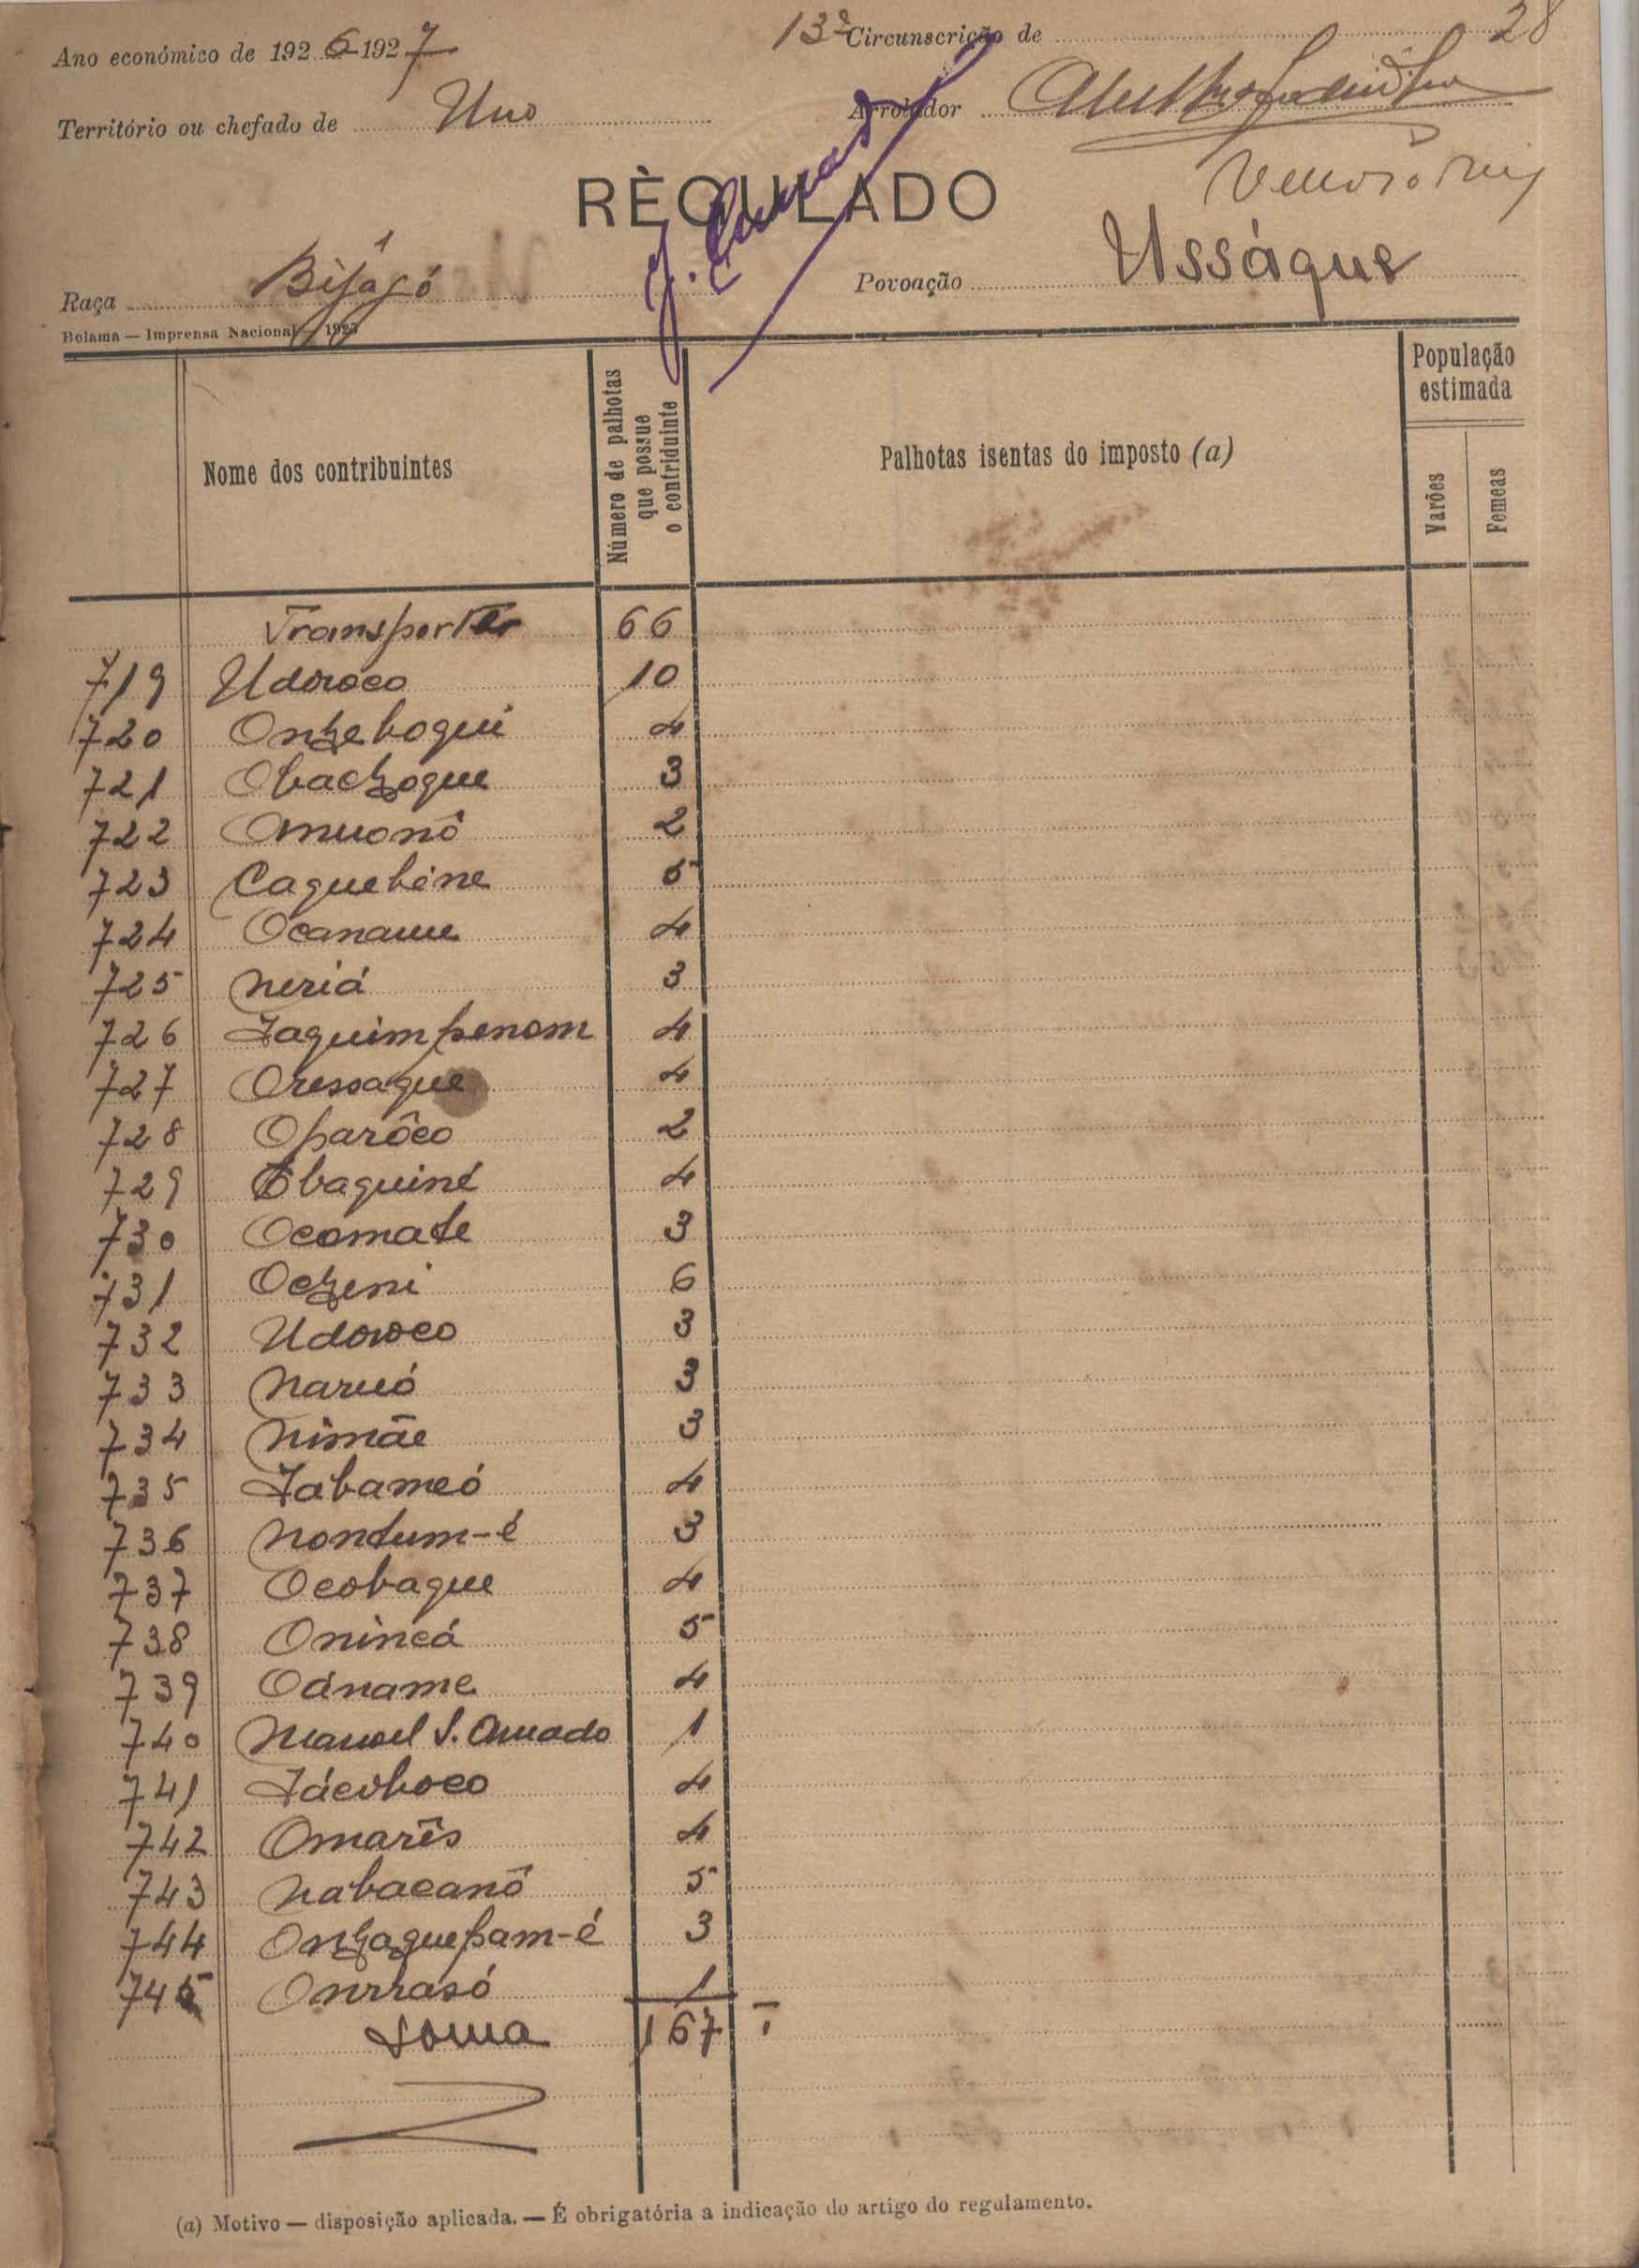 13ª Circunscrição de 28
Ano económico de 1926-1927
Território ou chefado de Uno
Arrolador
RÈGULADO
Raça Bijagó
Povoação Ussáque
Bolama — Imprensa Nacional — 1925
Nome dos contribuintes
Número de palhotas que possue o contriduinte
Palhotas isentas do imposto (a)
População estimada
Varões
Femeas
Transporte 66
719 Udoroco 10
720 Onheboqui 4
721 Obachoque 3
722 Omuonô 2
723 Caquebéne 5
724 Ocanaue 4
725 Neriá 3
726 Jaquimpenom 4
727 Oressaque 4
728 Oparôco 2
729 Ebaquiné 4
730 Ocomate 3
731 Ocheni 6
732 Udoroco 3
733 Naruó 3
734 Nimãe 3
735 Jabameó 4
736 Nontum-é 3
737 Ocobaque 4
738 Onincá 5
739 Odname 4
740 Manoel S. Amado 1
741 Jácoboco 4
742 Omarês 4
743 Nabacanô 5
744 Onhaquepam-é 3
745 Onrrasó 1
Soma 167
(a) Motivo — disposição aplicada. — É obrigatória a indicação do artigo do regulamento.